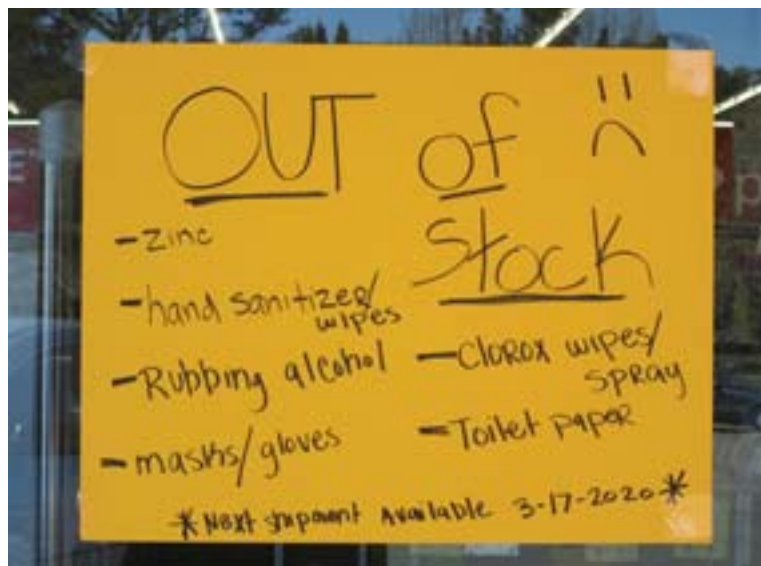 OUT of
Stock
-zinc
-hand sanitizer/
wipes
-Rubbing alcohol
-masks/gloves
-Clorox wipes/
spray
-Toilet paper
*Next shipment Available 3-17-2020*